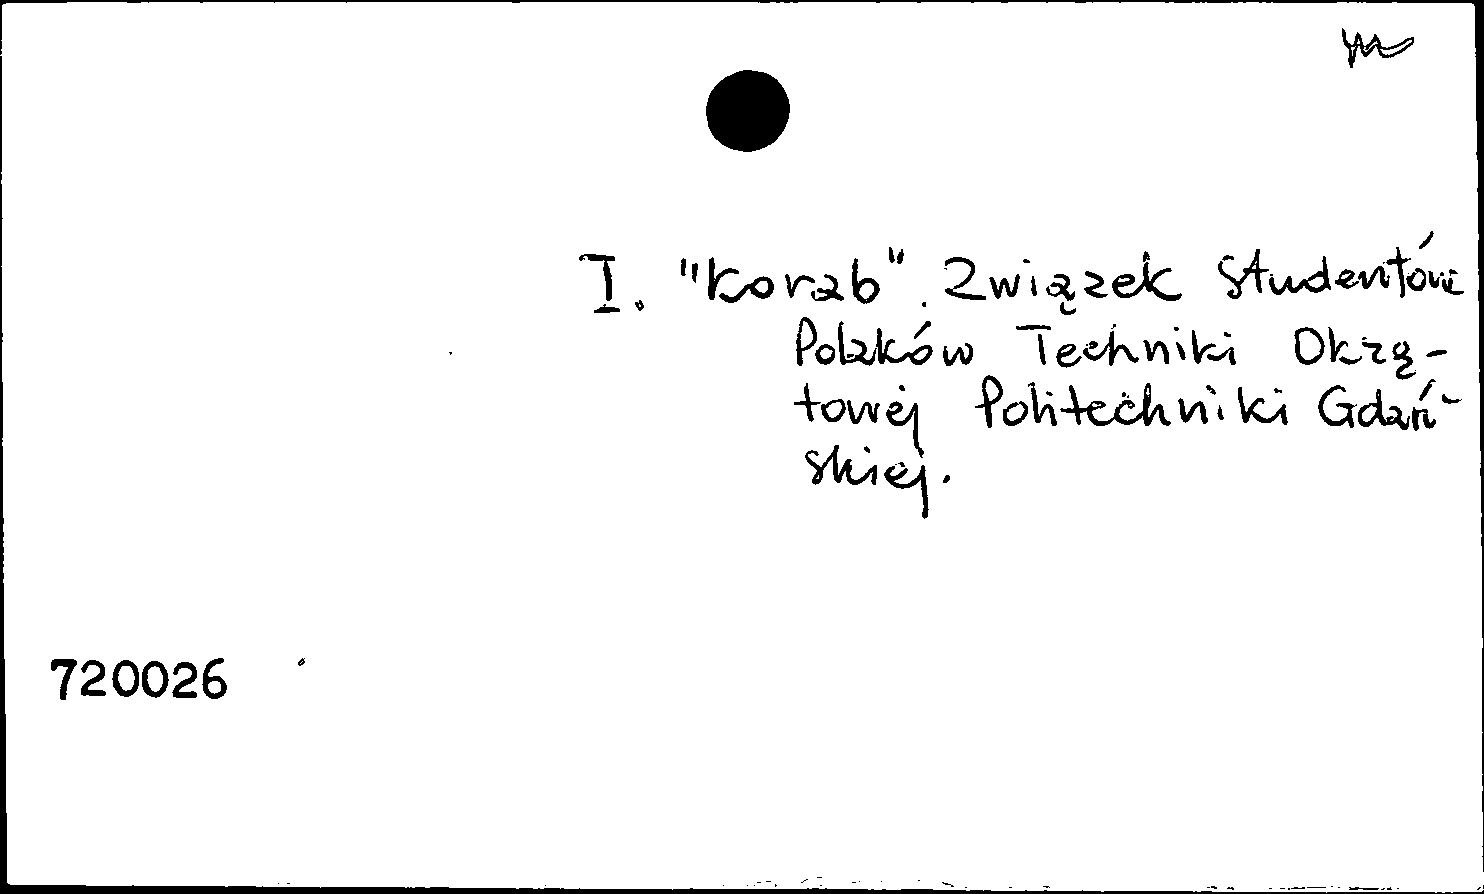 I. "Korab". Związek Studentów
Polaków Techniki Okrę-
towej Politechniki Gdań-
skiej.
720026